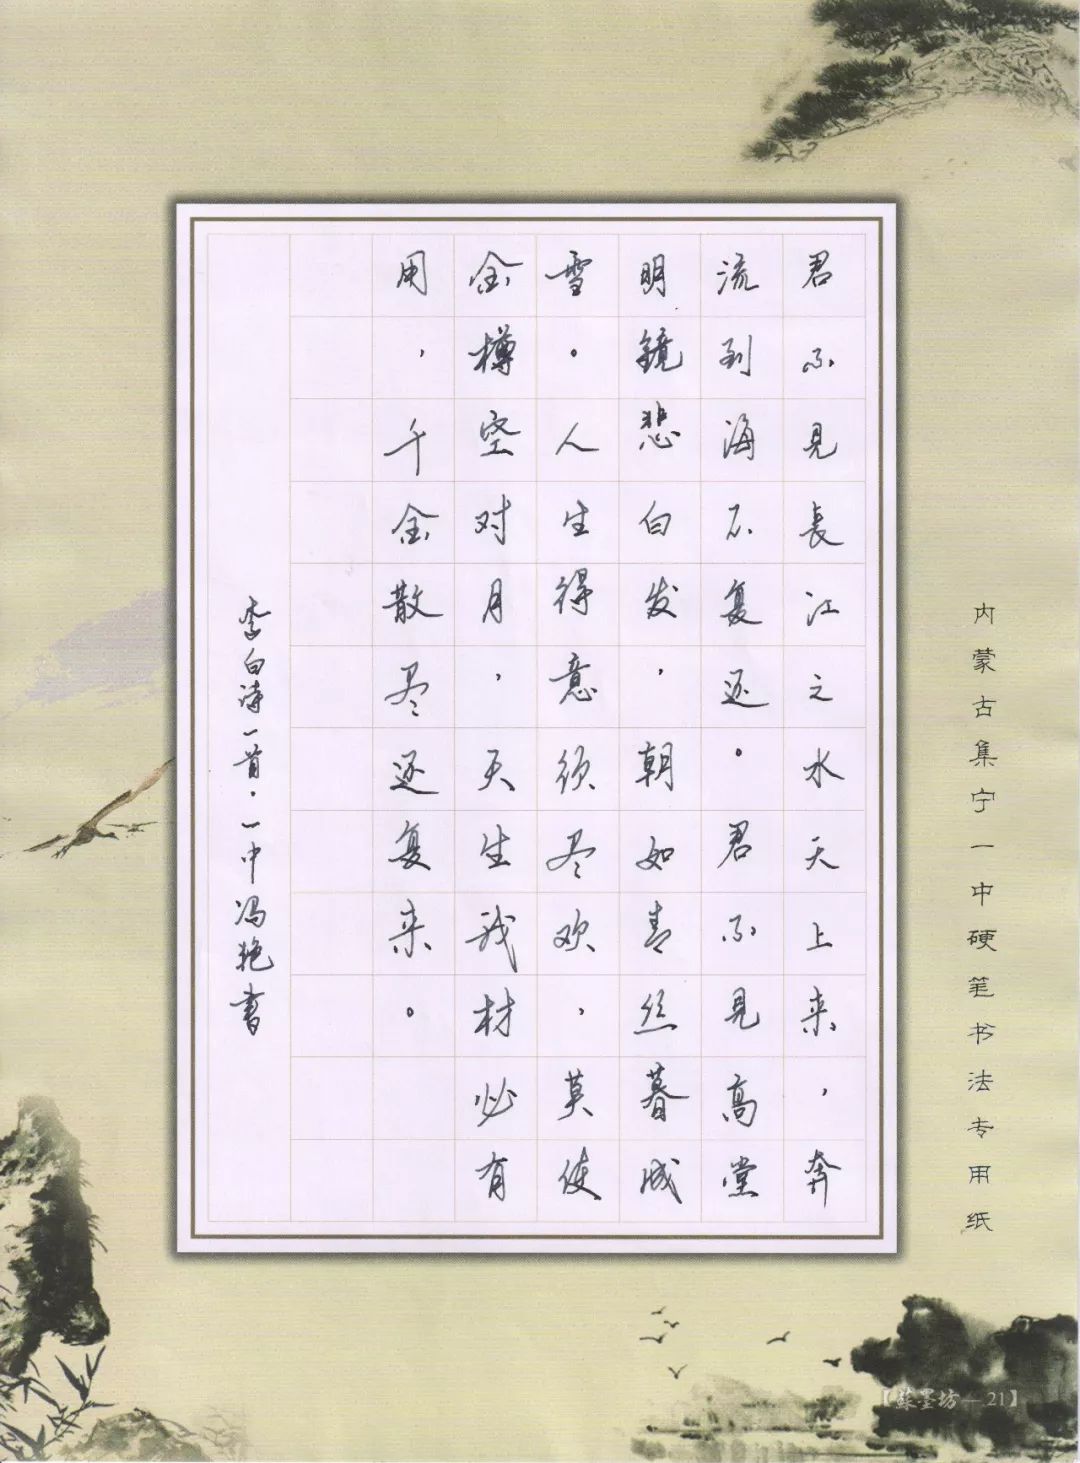 内蒙古集宁一中硬笔书法专用纸
君不見長江之水天上来，奔
流到海不复还。君不見高堂
明镜悲白发，朝如青丝暮成
雪。人生得意须尽欢，莫使
金樽空对月，天生我材必有
用，千金散尽还复来。
李白诗一首·一中冯艳书
【蘇墨坊—21】